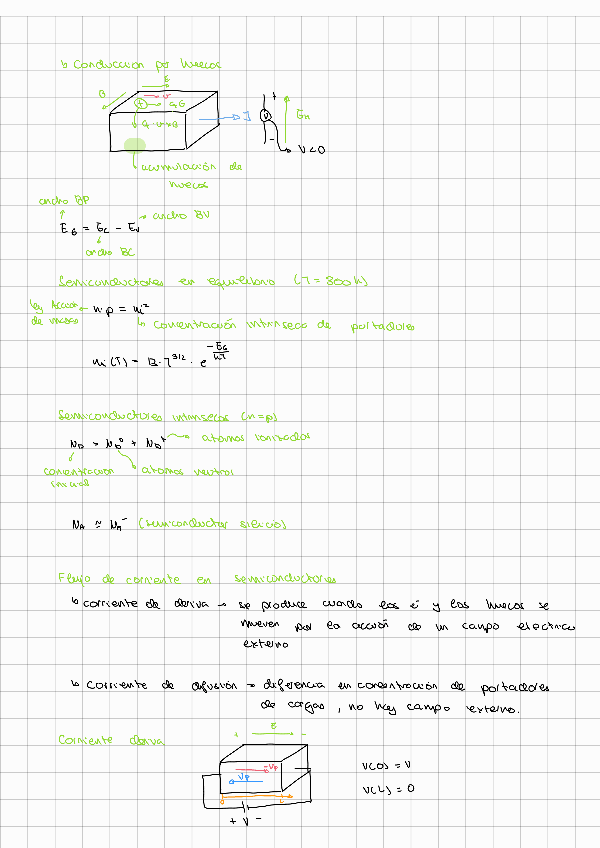 ↳ Conducción por huecos
E
B
v
+
q E
q · v × B
J
+
V
-
E_H
V < 0
acumulación de
huecos
ancho BP
ancho BV
E_G = E_C - E_V
ancho BC
Semiconductores en equilibrio (T = 300 K)
ley Acción
de masas
n·p = ni²
↳ concentración intrínseca de portadores
ni (T) = B · T^3/2 · e^(-E_G/KT)
Semiconductores intrínsecos (n=p)
N_D = N_D⁰ + N_D⁺ → átomos ionizados
concentración átomos neutros
inicial
N_A ≈ N_A⁻ (semiconductor silicio)
Flujo de corriente en semiconductores
↳ corriente de deriva → se produce cuando los e⁻ y los huecos se
mueven por la acción de un campo eléctrico
externo
↳ corriente de difusión → diferencia en concentración de portadores
de cargas, no hay campo externo.
+ E -
Corriente deriva
Vp
Vp
0 L
V(0) = V
V(L) = 0
+ V -